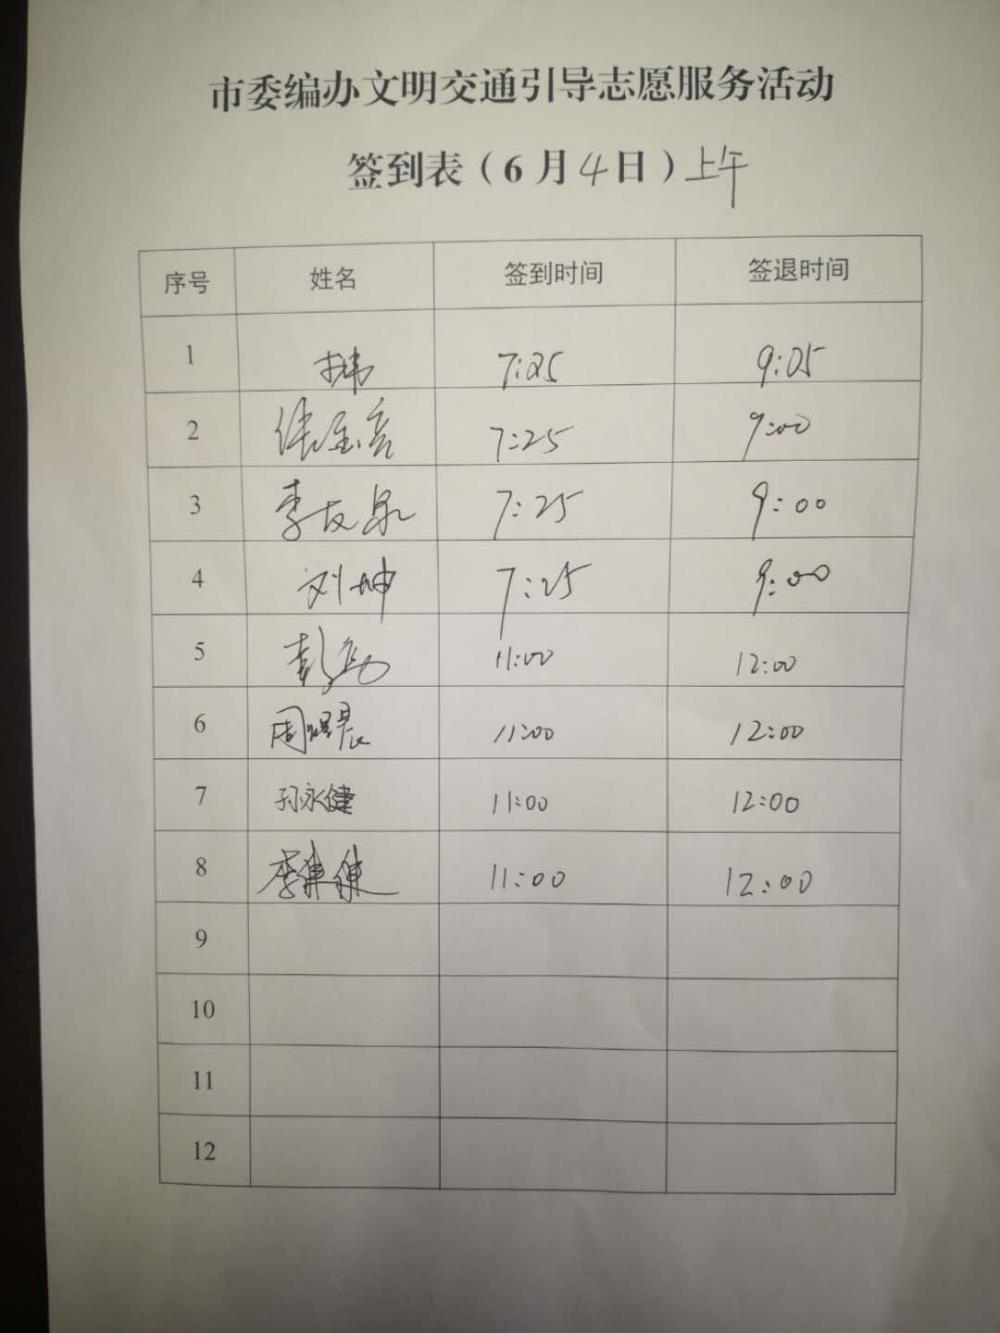 市委编办文明交通引导志愿服务活动
签到表（6月4日）上午
序号 姓名 签到时间 签退时间
1 7:25 9:05
2 7:25 9:00
3 李友泉 7:25 9:00
4 刘坤 7:25 9:00
5 11:00 12:00
6 11:00 12:00
7 孙永健 11:00 12:00
8 11:00 12:00
9
10
11
12